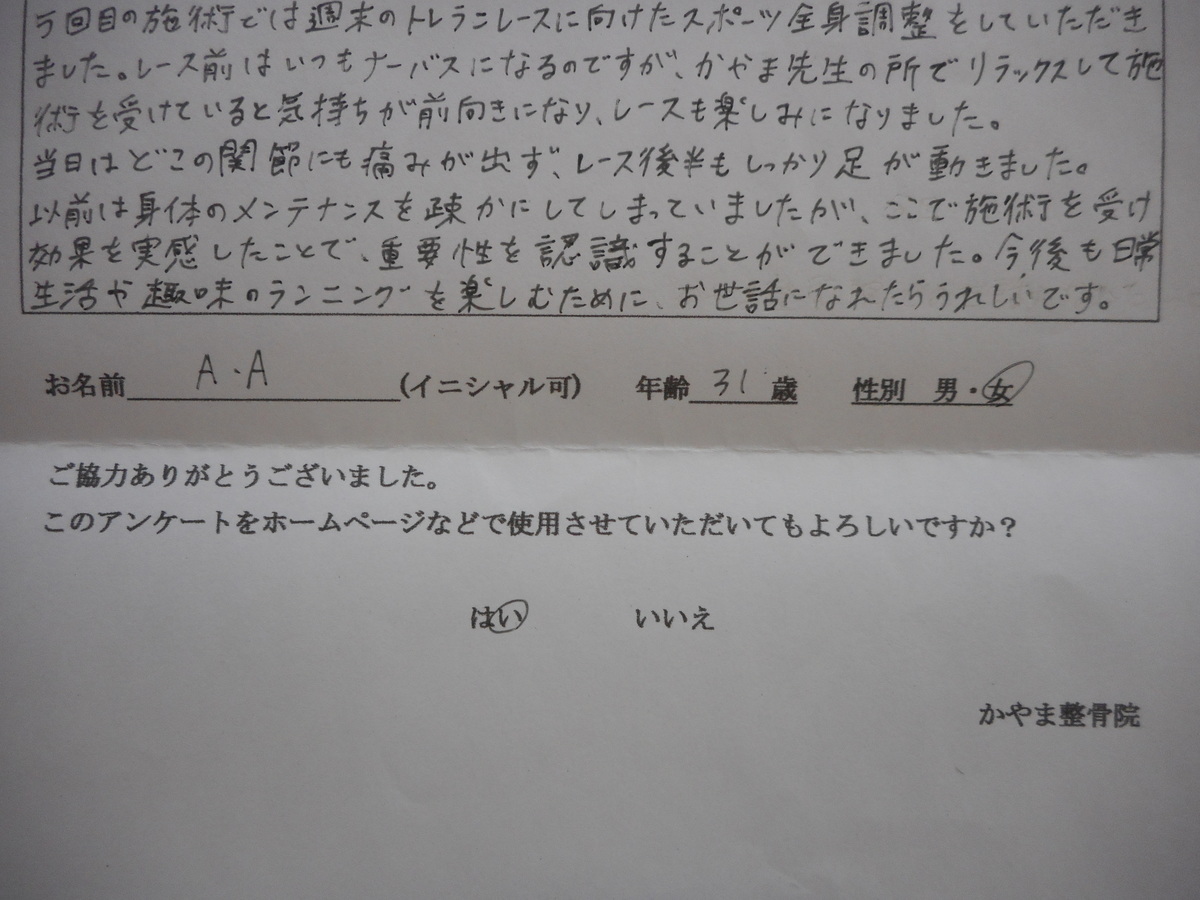 5回目の施術では週末のトレランレースに向けたスポーツ全身調整をしていただき
ました。レース前はいつもナーバスになるのですが、かやま先生の所でリラックスして施
術を受けていると気持ちが前向きになり、レースも楽しみになりました。
当日はどこの関節にも痛みが出ず、レース後半もしっかり足が動きました。
以前は身体のメンテナンスを疎かにしてしまっていましたが、ここで施術を受け
効果を実感したことで、重要性を認識することができました。今後も日常
生活や趣味のランニングを楽しむために、お世話になれたらうれしいです。
お名前 A・A (イニシャル可) 年齢 31 歳 性別 男・女
ご協力ありがとうございました。
このアンケートをホームページなどで使用させていただいてもよろしいですか？
はい いいえ
かやま整骨院